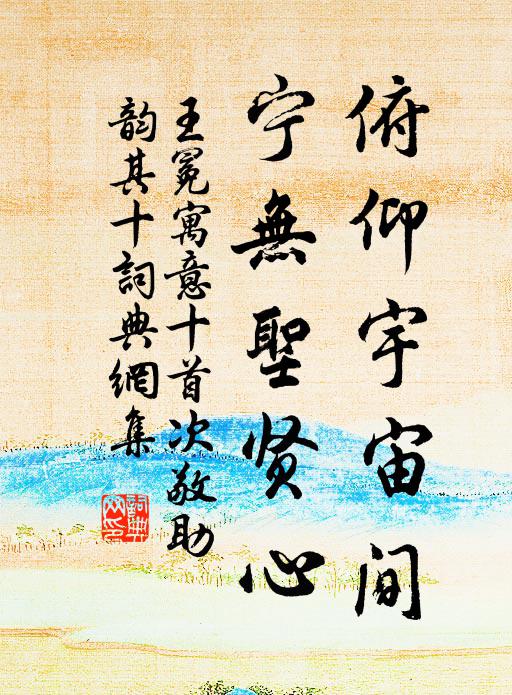 俯仰宇宙间
宁無聖贤心
王冕寓意十首次敬助
韵其十詞典網集
詞典